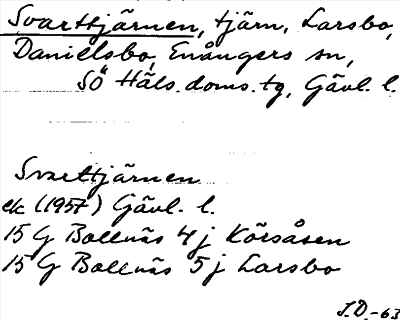 Svarttjärnen, tjärn, Larsbo,
Danielsbo, Enångers sn,
SÖ Häls. doms. tg, Gävl. l.
Svarttjärnen
ek (1957) Gävl. l.
15 G Bollnäs 4 j Körsåsen
15 G Bollnäs 5 j Larsbo
J.D.-63